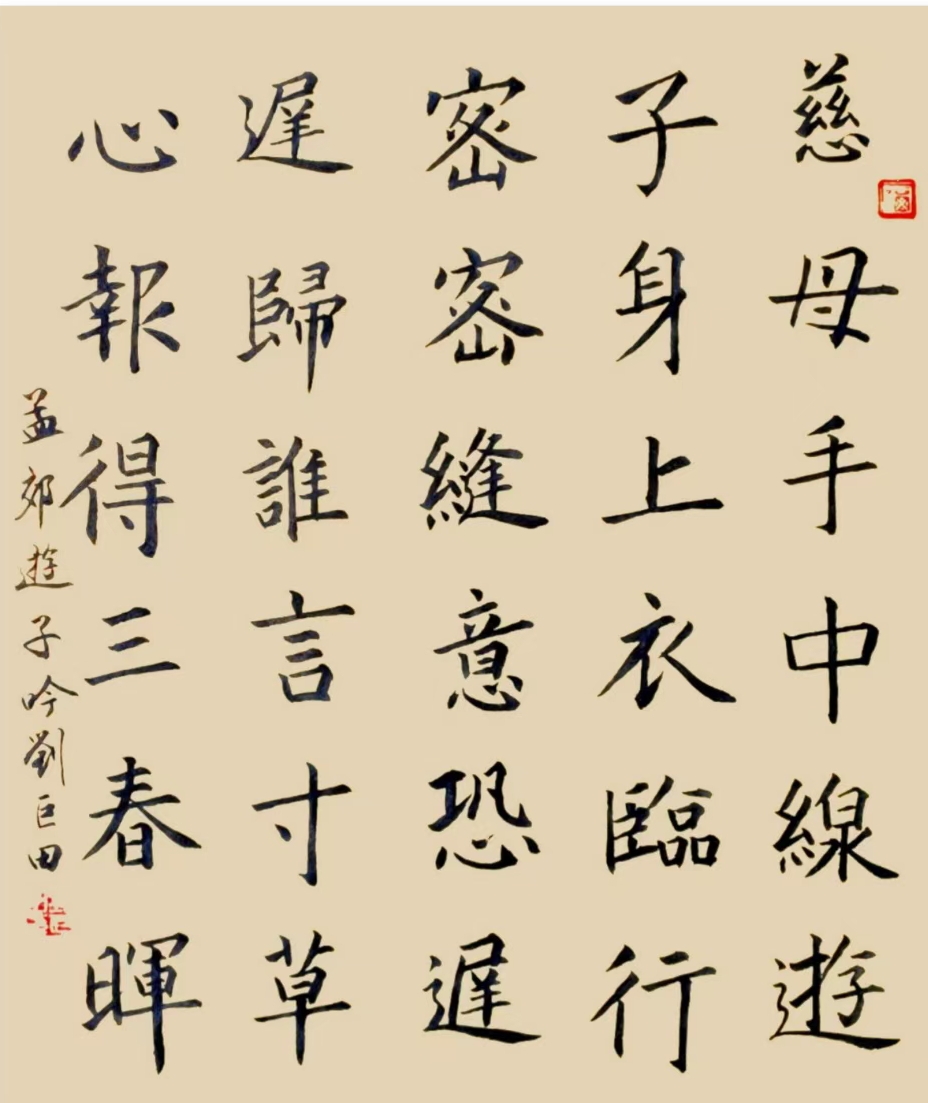 慈母手中線遊
子身上衣臨行
密密縫意恐遲
遲歸誰言寸草
心報得三春暉
孟郊遊子吟劉巨田